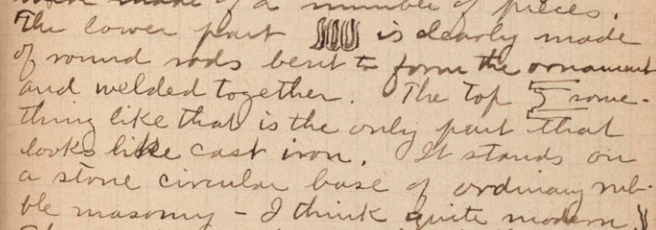 made of a number of pieces.
The lower part is clearly made
of round rods bent to form the ornament
and welded together. The top some-
thing like that is the only part that
looks like cast iron. It stands on
a stone circular base of ordinary rub-
ble masonry - I think quite modern.